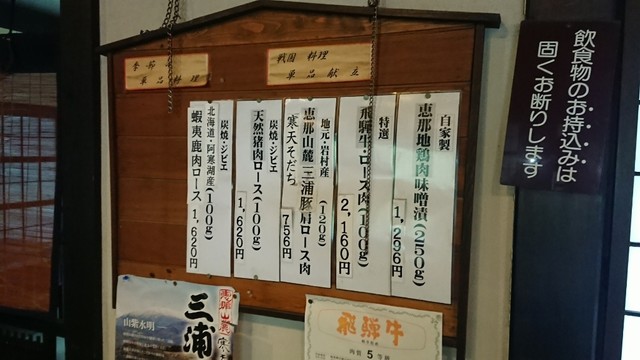 飲食物のお持込みは
固くお断りします
戦国 料理
単品献立
季節
単品料理
自家製
恵那地鶏肉味噌漬(250g)
1,296円
特選
飛騨牛・ロース肉(100g)
2,160円
地元・岩村産
(120g)
恵那山麓 三浦豚肩ロース肉
寒天そだち
756円
炭焼・ジビエ
天然猪肉ロース(100g)
1,620円
炭焼・ジビエ
北海道・阿寒湖産(100g)
蝦夷鹿肉ロース 1,620円
恵那山麓
三浦
山紫水明
飛騨牛
肉質 5等級